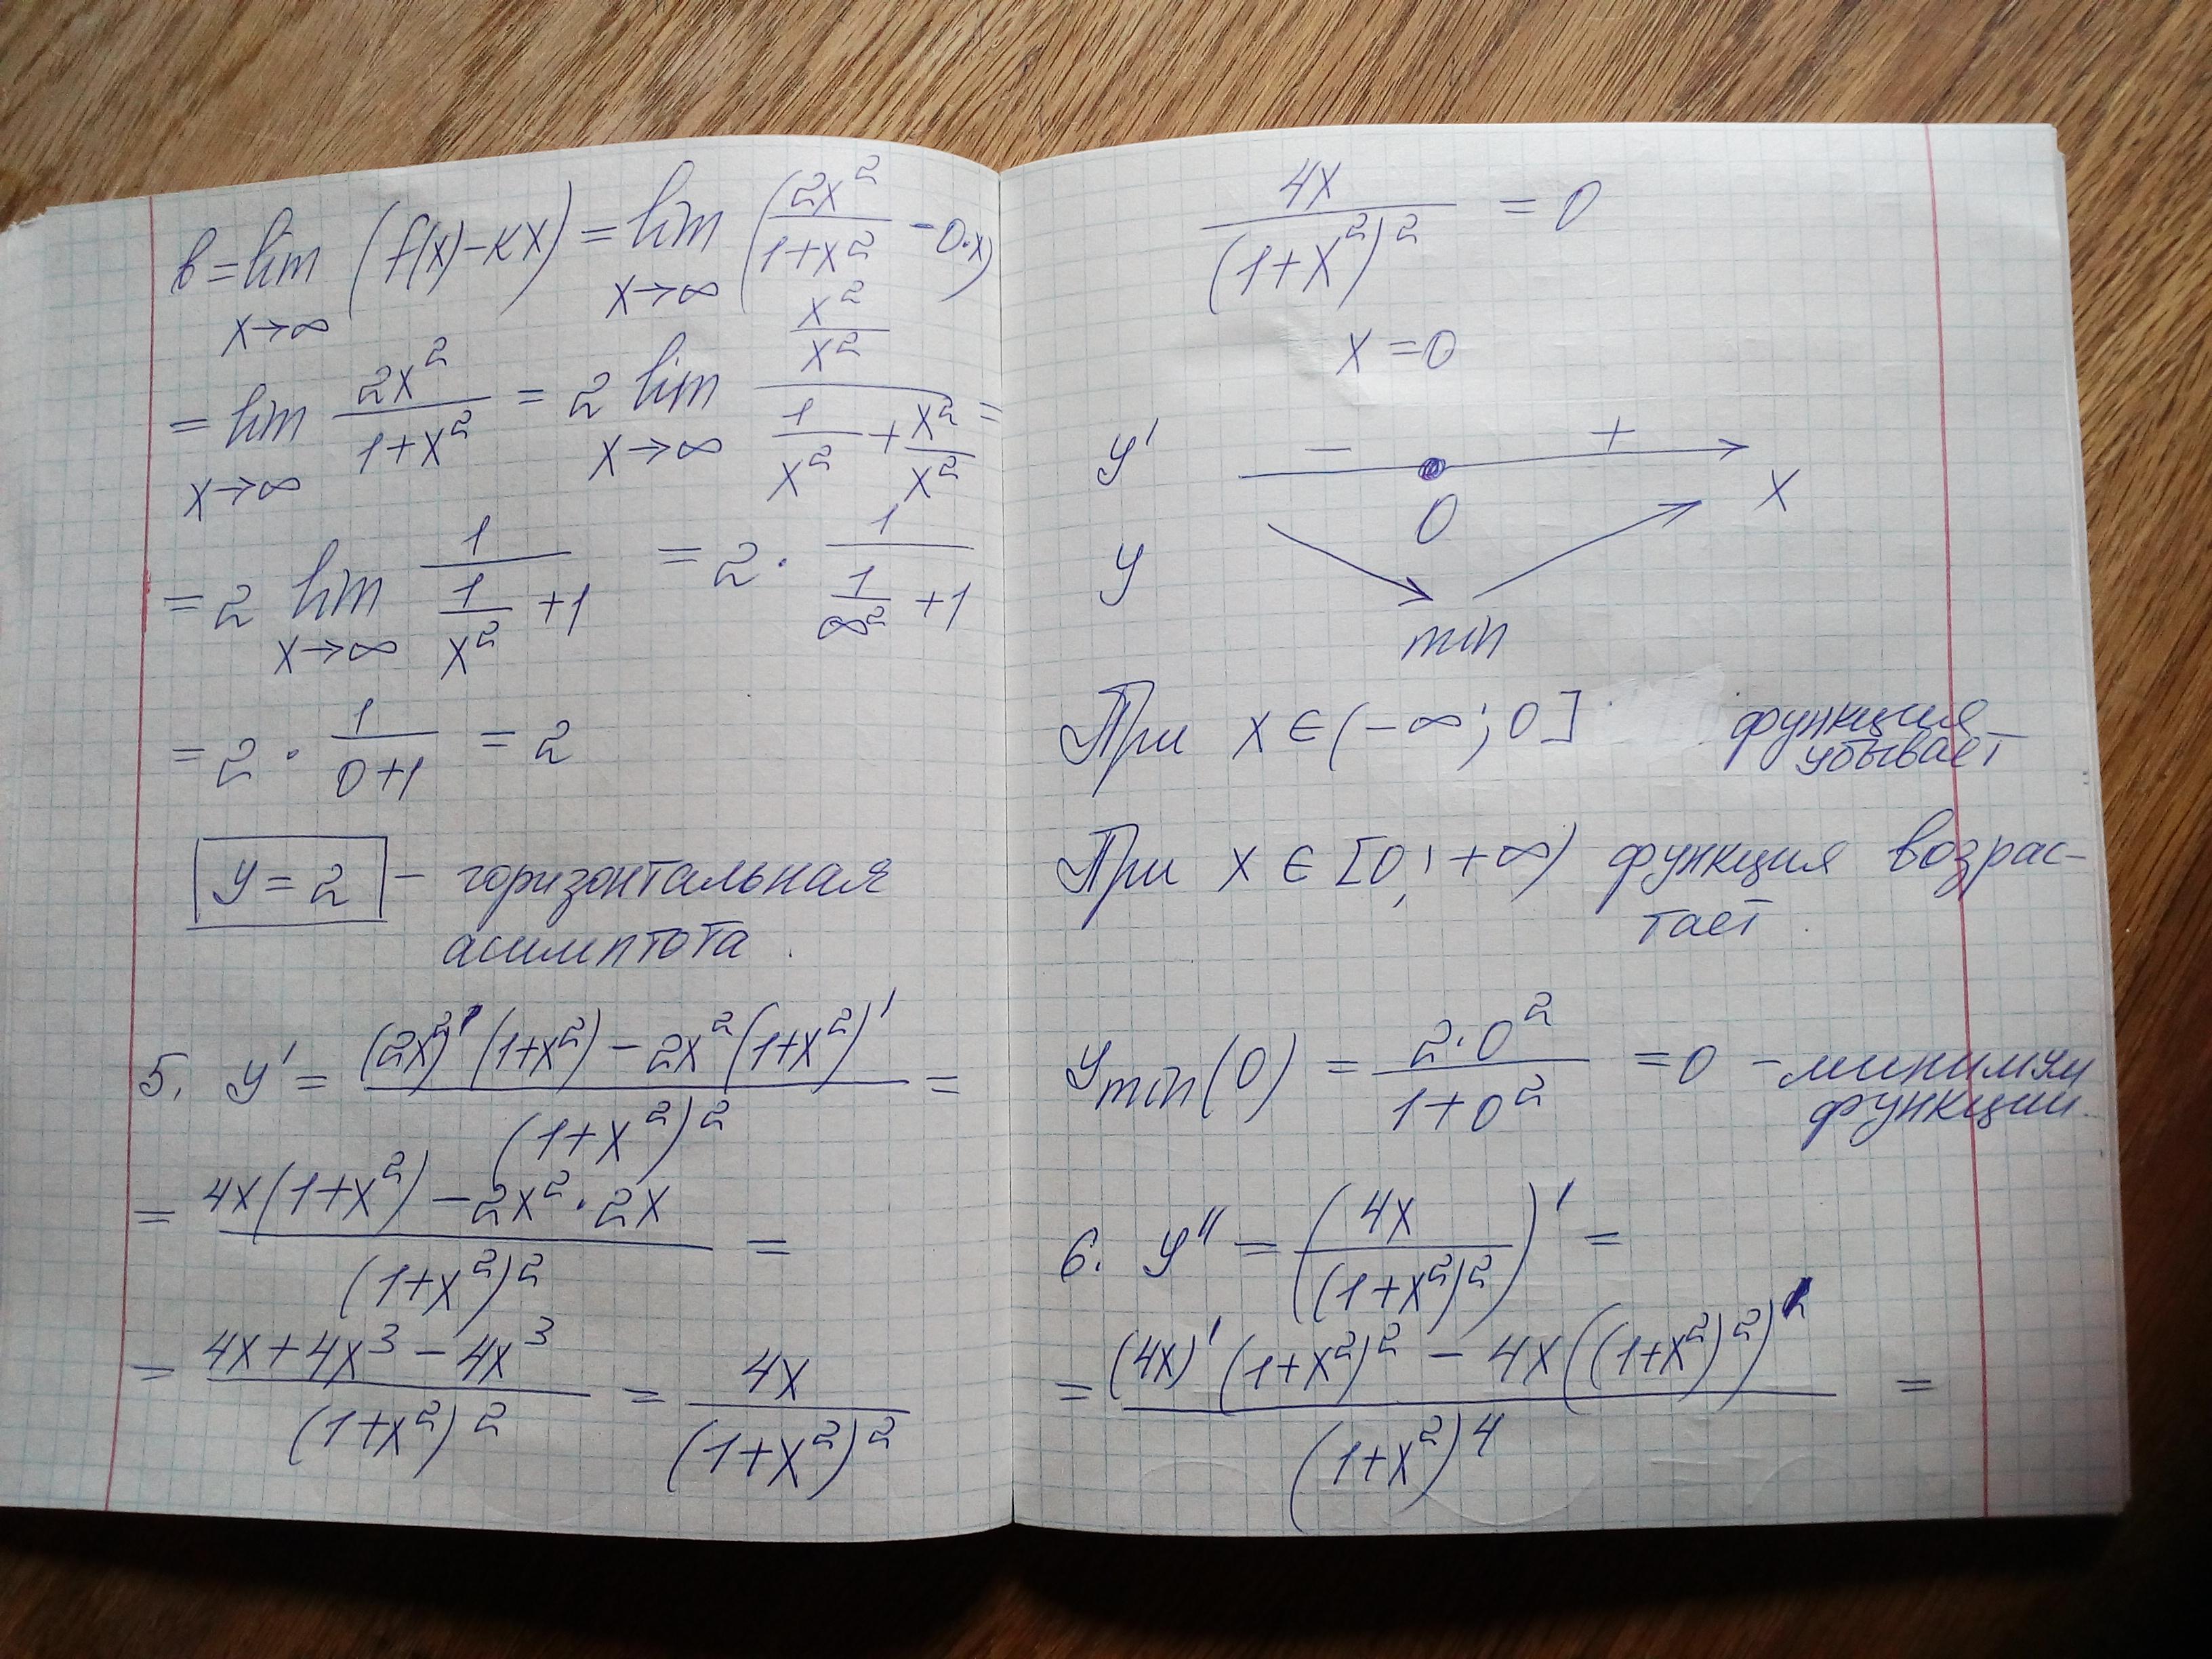 b = lim (f(x) - kx) = lim (2x²/(1+x²) - 0·x)
x→∞ x→∞
= lim 2x²/(1+x²) = 2 lim (x²/x²)/(1/x² + x²/x²) =
x→∞ x→∞
= 2 lim 1/(1/x² + 1) = 2 · 1/(1/∞² + 1)
x→∞
= 2 · 1/(0+1) = 2
y = 2 - горизонтальная
асимптота.
5. y' = ((2x²)'(1+x²) - 2x²(1+x²)')/(1+x²)² =
= (4x(1+x²) - 2x²·2x)/(1+x²)² =
= (4x + 4x³ - 4x³)/(1+x²)² = 4x/(1+x²)²
4x/(1+x²)² = 0
x = 0
y' - + x
0
y
min
При x ∈ (-∞; 0] функция
убывает
При x ∈ [0; +∞) функция возрас-
тает.
y min(0) = (2·0²)/(1+0²) = 0 - минимум
функции.
6. y'' = (4x/(1+x²)²)' =
= ((4x)'(1+x²)² - 4x((1+x²)²)')/(1+x²)⁴ =